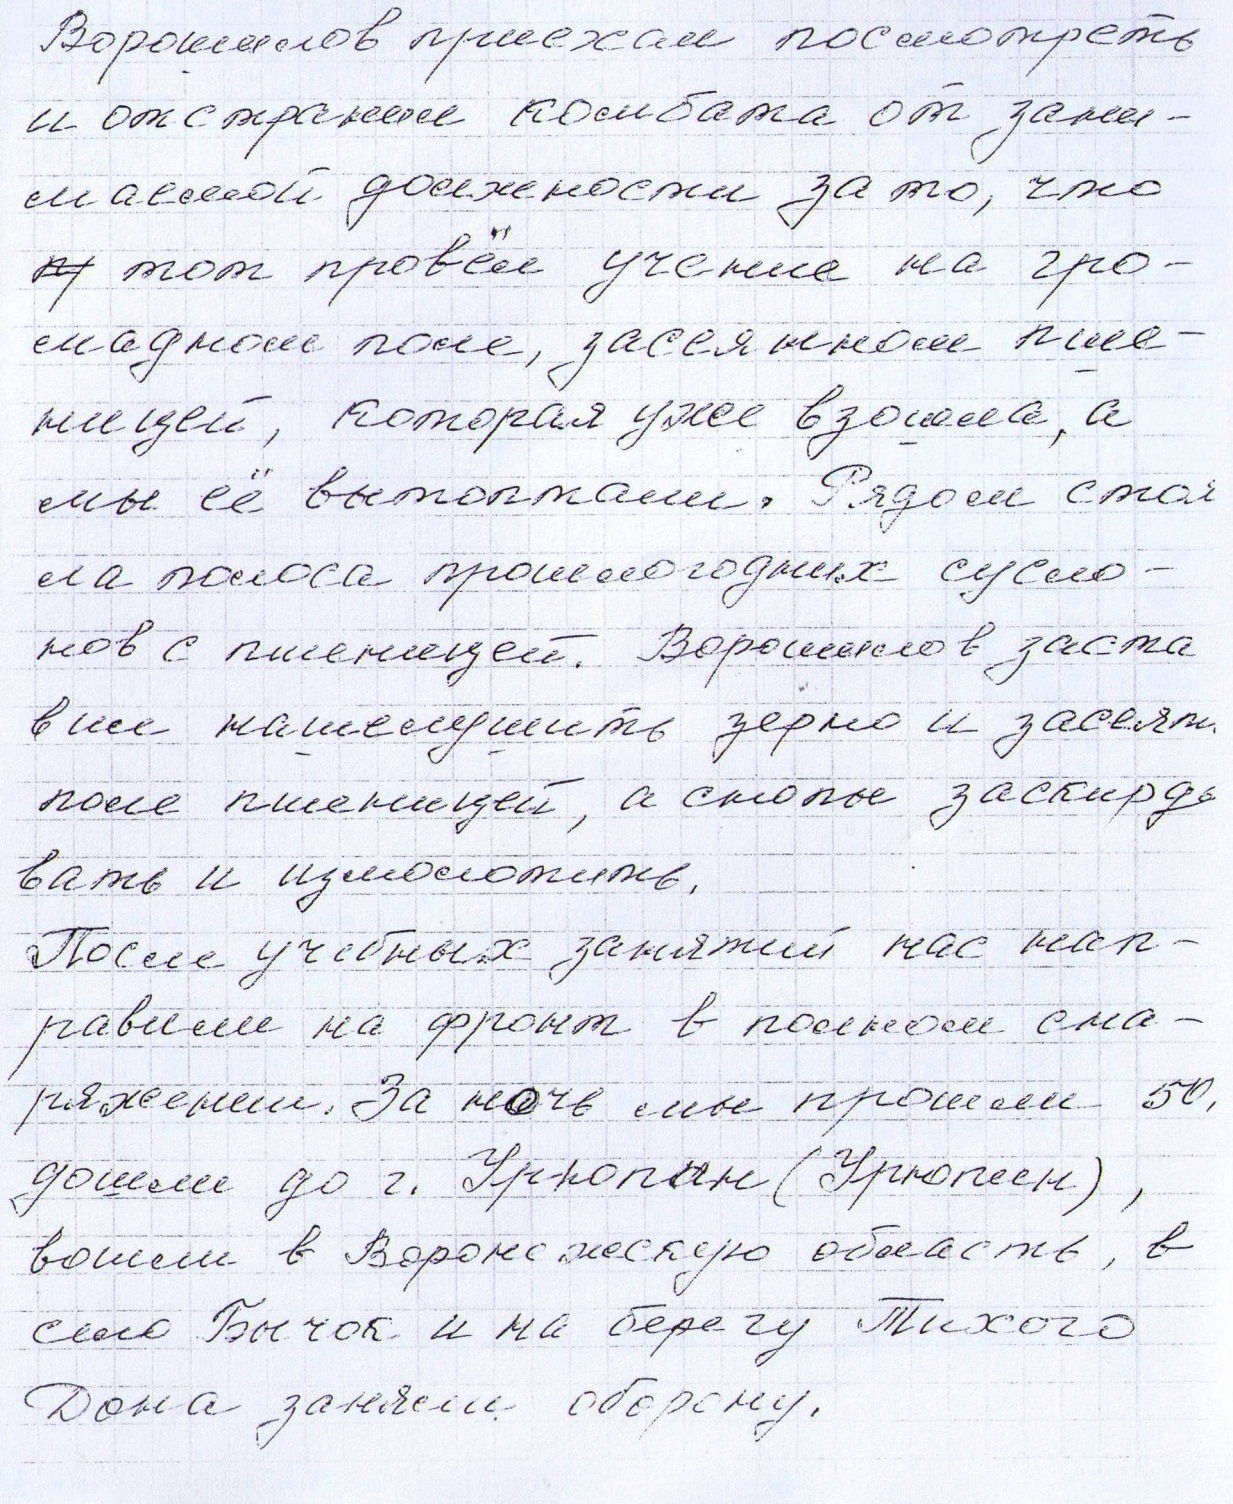 Ворошилов приехал посмотреть
и отстранил комбата от зани-
маемой должности за то, что
тот провёл учение на гро-
мадном поле, засеянном пше-
ницей, которая уже взошла, а
мы её вытоптали. Рядом стоя
ла полоса прошлогодних сусло-
нов с пшеницей. Ворошилов заста
вил нашелушить зерно и засеять
поле пшеницей, а снопы заскирдо
вать и измолотить.
После учебных занятий нас нап-
равили на фронт в полном сна-
ряжении. За ночь мы прошли 50,
дошли до г. Урюпин (Урюпин),
вошли в Воронежскую область, в
село Бычок и на берегу Тихого
Дона заняли оборону.